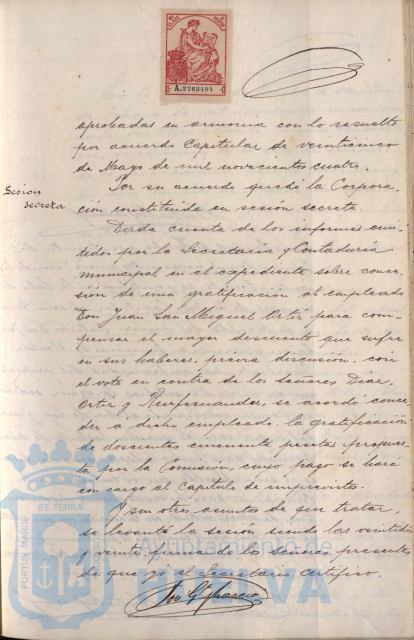 A.2763404
aprobadas en armonia con lo resuelto
por acuerdo Capitular de veinticinco
de Mayo de mil novecientos cuatro.
Sesion
secreta
Por su acuerdo quedó la Corpora-
ción constituida en sesión secreta.
Dada cuenta de los informes emi-
tidos por la Secretaria y Contaduría
municipal en el expediente sobre conce-
sión de una gratificación al empleado
Don Juan San Miguel Ortiz para com-
pensar el mayor descuento que sufre
en sus haberes, previa discusión, con
el voto en contra de los Señores Diaz,
Ortiz y se acordó conce-
der á dicho empleado la gratificación
de doscientas cincuenta pesetas propues-
ta por la Comisión, cuyo pago se hará
con cargo al Capitulo de imprevistos.
Y sin otros asuntos de que tratar,
se levantó la sesión siendo las veintidos
y veinte, firman de los señores presentes
de que yo el Secretario certifico.
ET TERRA
PORTUS MARIS
Ayuntamiento de
HUELVA